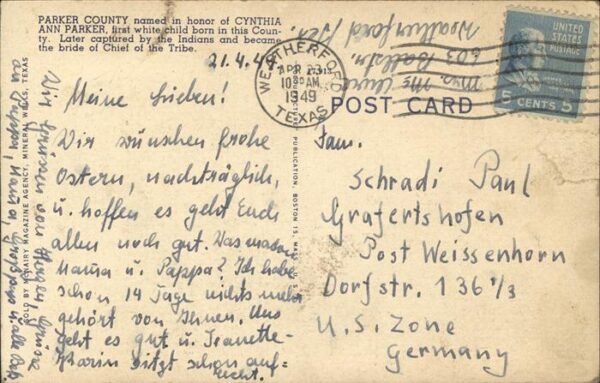 PARKER COUNTY named in honor of CYNTHIA
ANN PARKER, first white child born in this Coun-
ty. Later captured by the Indians and became
the bride of Chief of the Tribe.
21.4.4
Meine Lieben!
Wir wünschen frohe
Ostern, nachträglich,
u. hoffen es geht Euch
allen noch gut. Was machen
Mama u. Pappa? Ich habe
schon 14 Tage nichts mehr
gehört von Ihnen. Uns
geht es gut u. Jeanette-
Karin sitzt schon auf-
recht.
SOLD BY McNAIRY MAGAZINE AGENCY, MINERAL WELLS, TEXAS
PUBLICATION, BOSTON 15, MASS., U. S.
WEATHERFORD
APR 23
10 AM
1949
TEXAS
Weatherford
603
Mrs.
UNITED
STATES
POSTAGE
5 CENTS 5
POST CARD
Fam.
Schradi Paul
Grafertshofen
Post Weissenhorn
Dorfstr. 136 1/3
U.S. Zone
Germany